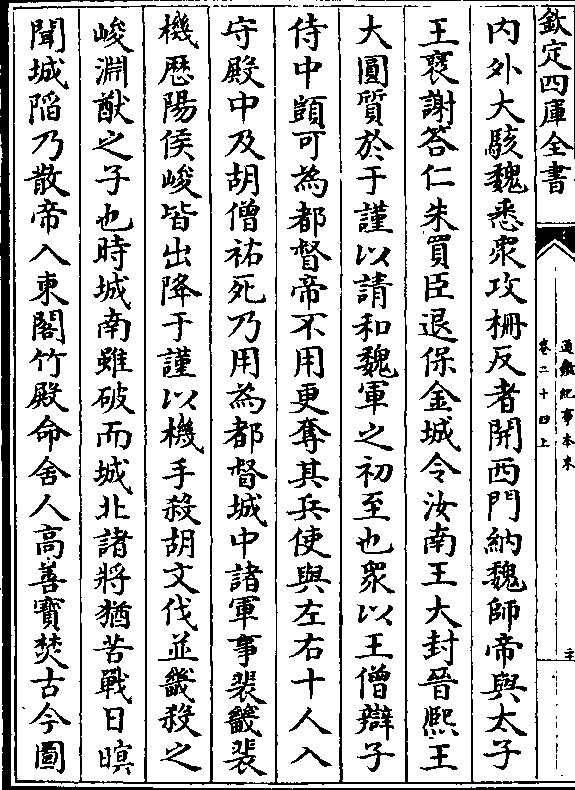 欽定四庫全書
通鑑紀事本末
卷二十四上
內外大駭魏悉衆攻柵反者開西門納魏師帝與太子
王裦謝答仁朱買臣退保金城令汝南王大封晉熙王
大圓質於于謹以請和魏軍之初至也衆以王僧辯子
侍中顗可為都督帝不用更奪其兵使與左右十人入
守殿中及胡僧祐死乃用為都督城中諸軍事裴畿裴
機歴陽侯峻皆出降于謹以機手殺胡文伐並畿殺之
峻淵猷之子也時城南雖破而城北諸將猶苦戰日暝
聞城陷乃散帝入東閣竹殿命舍人高善寳焚古今圖